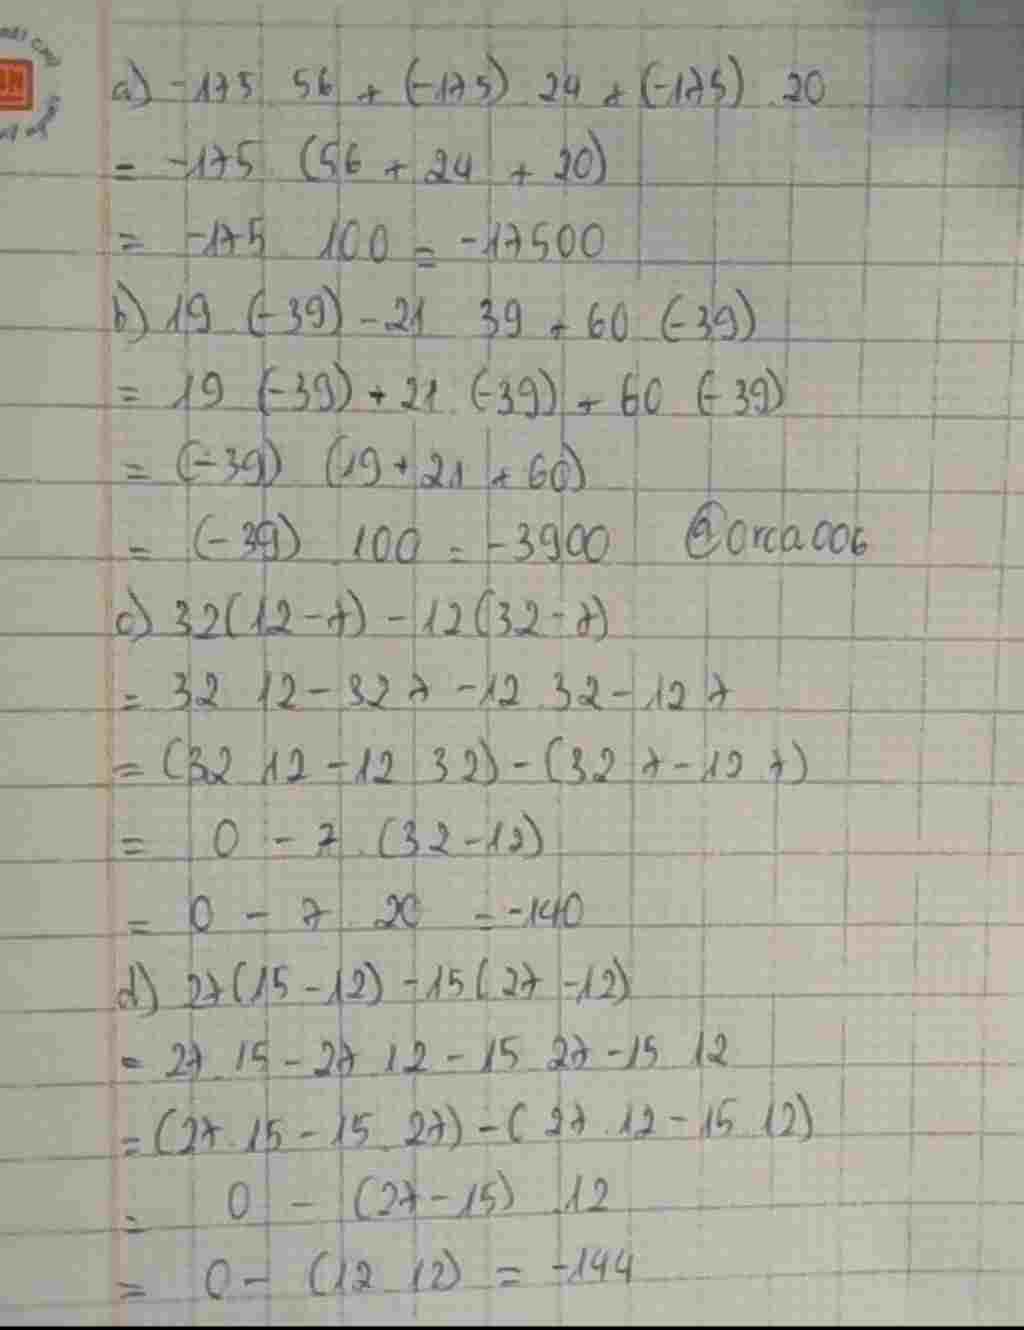 a) -175 56 + (-175) 24 + (-175) 20
= -175 (56 + 24 + 20)
= -175 100 = -17500
b) 19 (-39) - 21 39 + 60 (-39)
= 19 (-39) + 21 . (-39) + 60 (-39)
= (-39) (19 + 21 + 60)
= (-39) 100 = -3900 @orca006
c) 32(12-7) - 12(32-7)
= 32 12 - 32 7 - 12 32 - 12 7
= (32 12 - 12 32) - (32 7 - 12 7)
= 0 - 7 . (32-12)
= 0 - 7 . 20 = -140
d) 27(15-12) - 15(27-12)
= 27 15 - 27 12 - 15 27 - 15 12
= (27 . 15 - 15 27) - (27 . 12 - 15 12)
= 0 - (27-15) 12
= 0 - (12 12) = -144